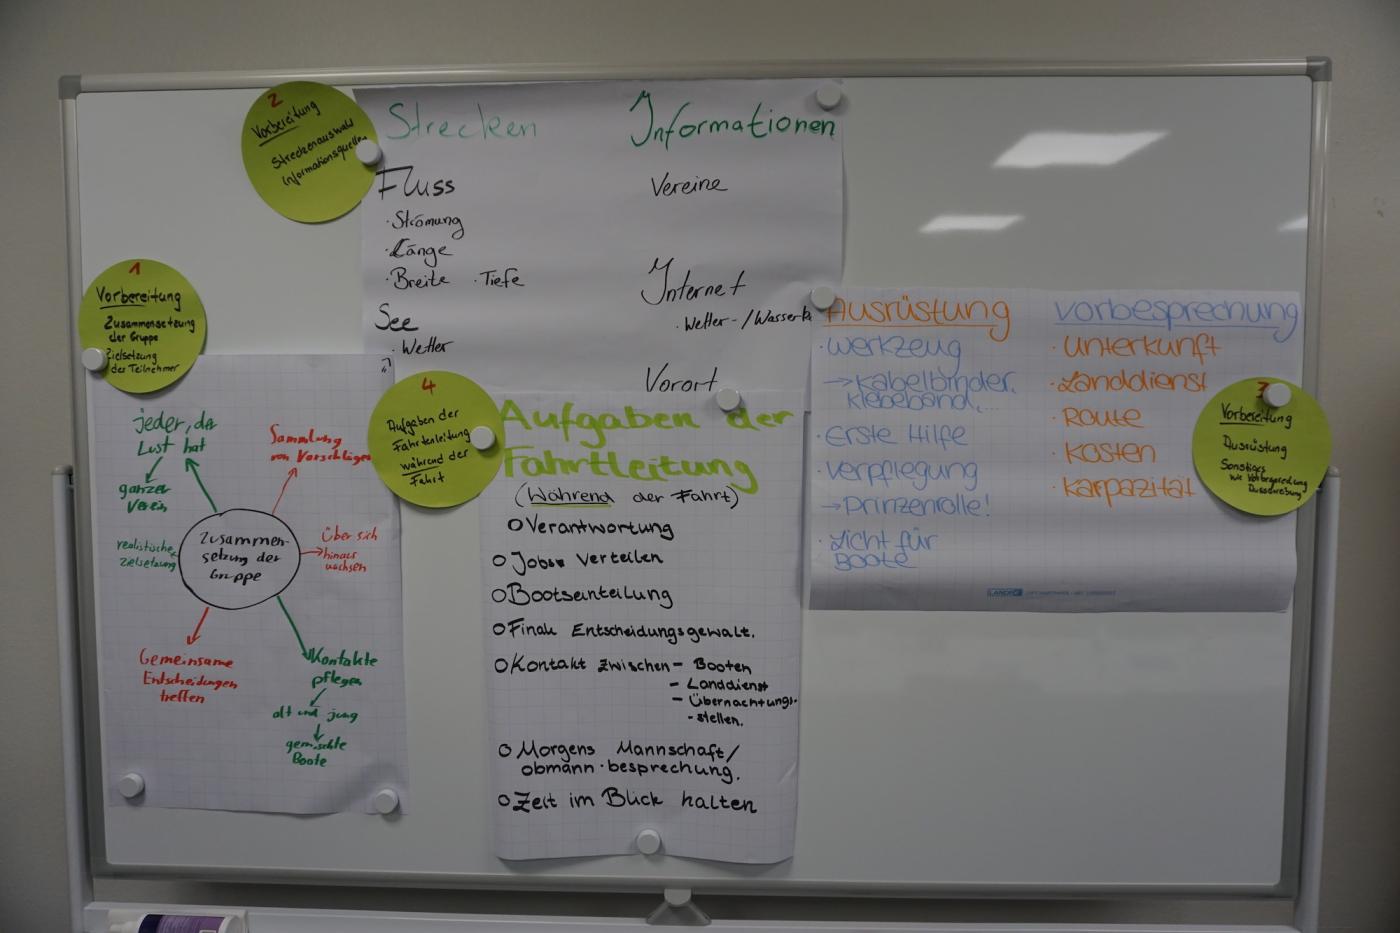 2
Vorbereitung
Streckenauswahl
Informationsquellen
Strecken
Fluss
· Strömung
· Länge
· Breite · Tiefe
See
· Wetter
Informationen
Vereine
Internet
· Wetter-/Wasserka
Vorort
1
Vorbereitung
Zusammensetzung
der Gruppe
Zielsetzung
der Teilnehmer
jeder, der
Lust hat
ganzer
Verein
Sammlung
von Vorschlägen
realistische
Zielsetzung
Zusammen-
setzung der
Gruppe
Über sich
hinaus
wachsen
Gemeinsame
Entscheidungen
treffen
Kontakte
pflegen
alt und jung
gemischte
Boote
4
Aufgaben der
Fahrtenleitung
während der
Fahrt
Aufgaben der
Fahrtleitung
(Während der Fahrt)
O Verantwortung
O Jobs verteilen
O Bootseinteilung
O Finale Entscheidungsgewalt.
O Kontakt zwischen - Booten
- Landdienst
- Übernachtungs-
- stellen.
O Morgens Mannschaft/
obmann · besprechung.
O Zeit im Blick halten
Ausrüstung
· Werkzeug
→ Kabelbinder,
Klebeband,...
· Erste Hilfe
· Verpflegung
→ Prinzenrolle!
· Licht für
Boote
Vorbesprechung
· Unterkunft
· Landdienst
· Route
· Kosten
· Karpazität
3
Vorbereitung
Ausrüstung
Sonstiges
wie Vorbesprechung
Ausschreibung